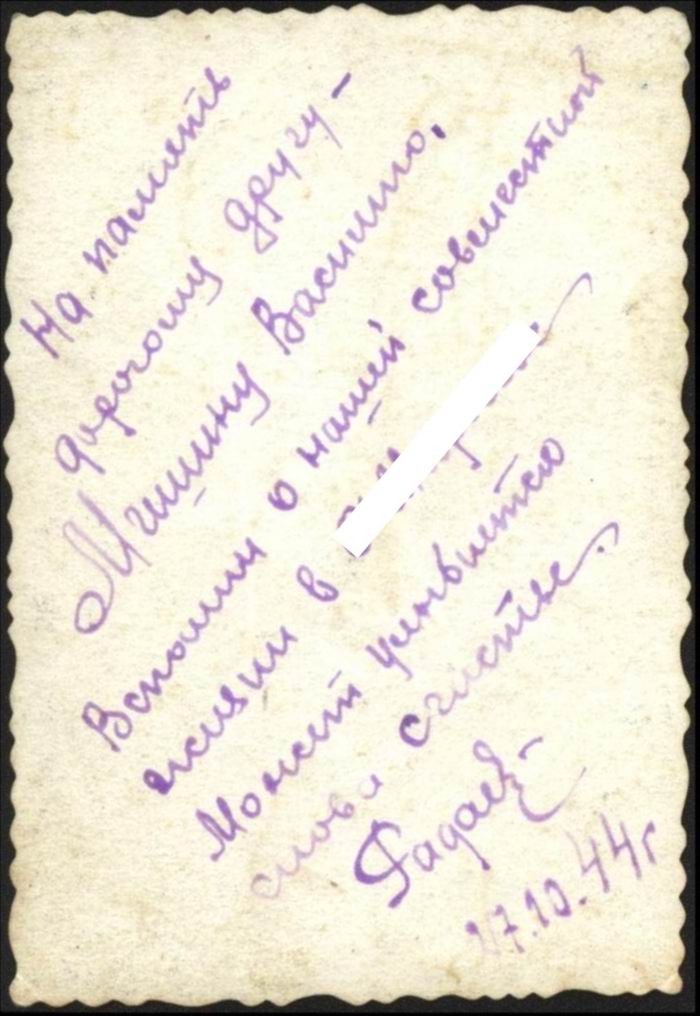 На память
дорогому другу –
Мишину Василию.
Вспомни о нашей совместной
жизни в
Может улыбнется
снова счастье.
Фадеев
27.10.44г